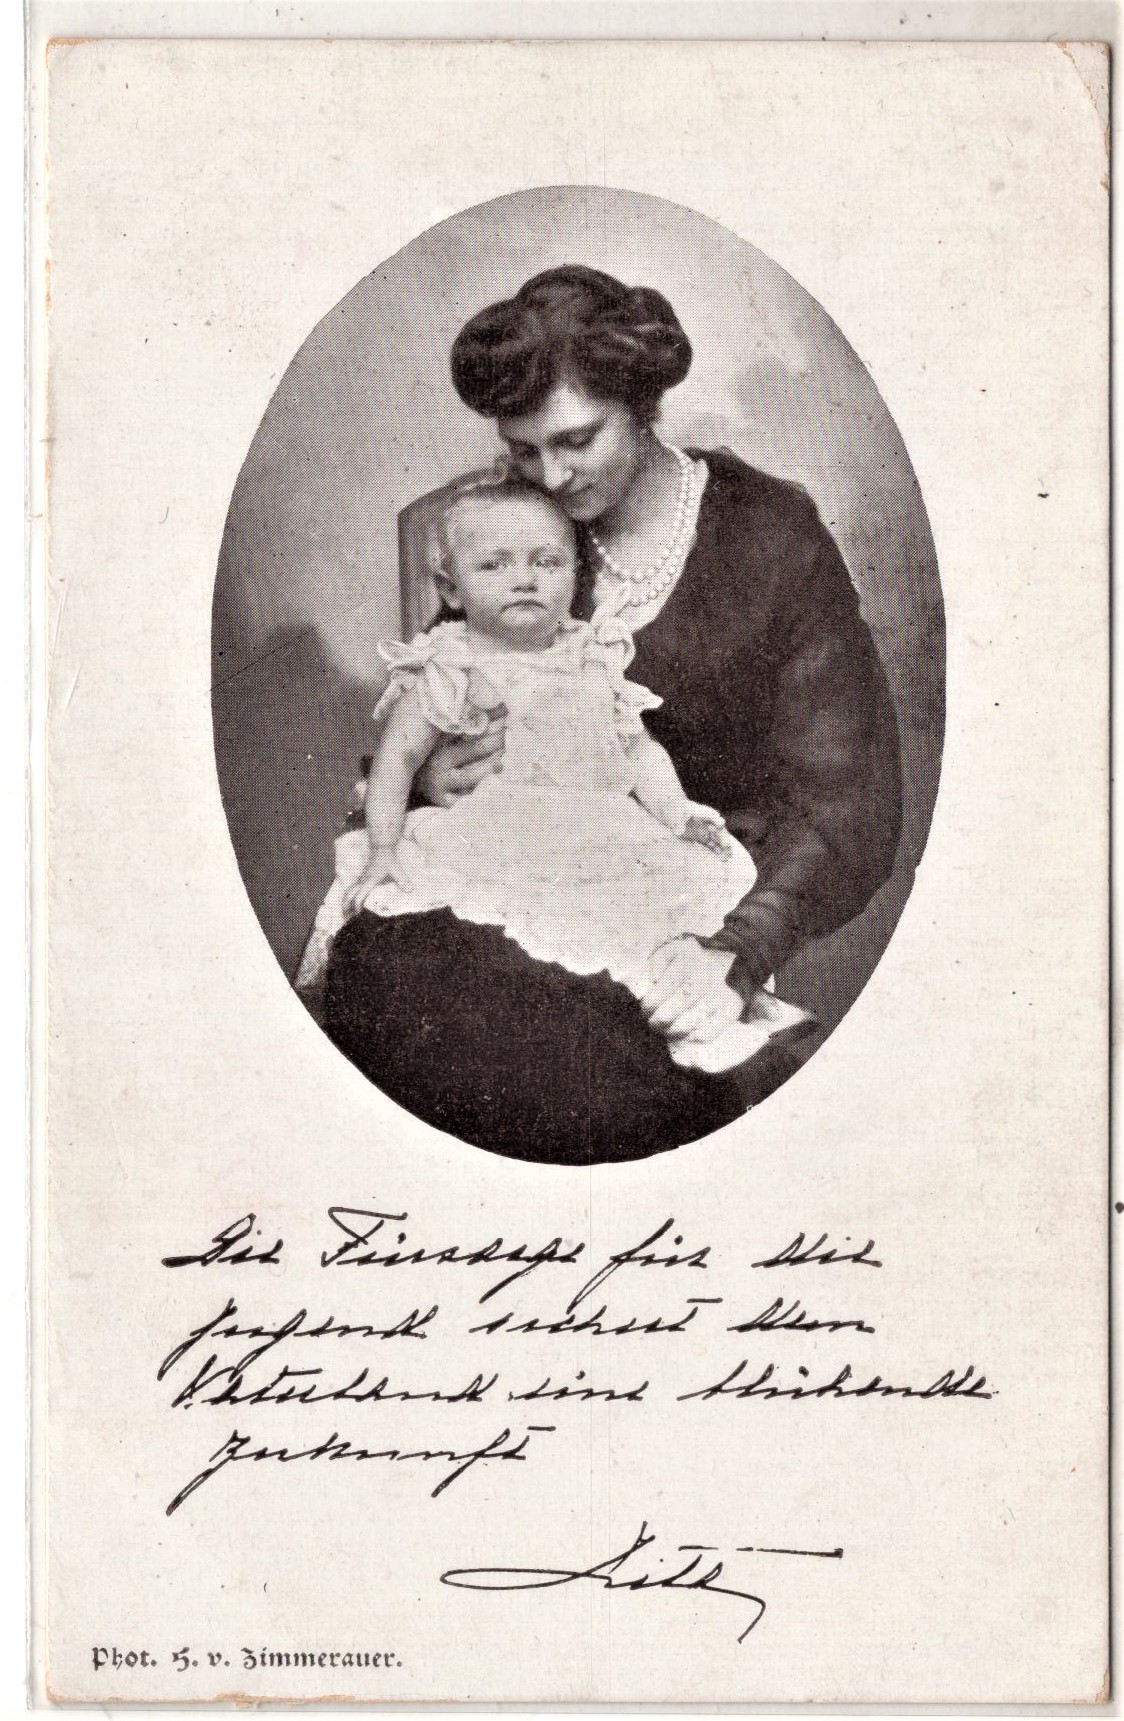 Die Fürsorge für die
Jugend sichert dem
Vaterland eine blühende
Zukunft
Zita
Phot. H. v. Zimmerauer.